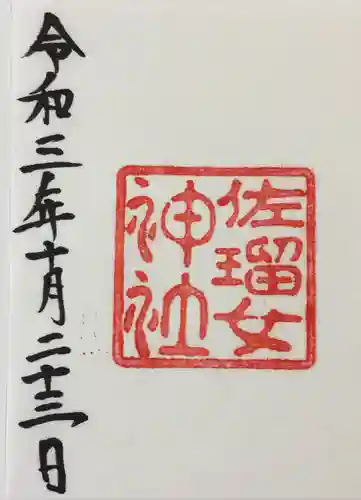 佐瑠女
神社
令和三年十月二十三日